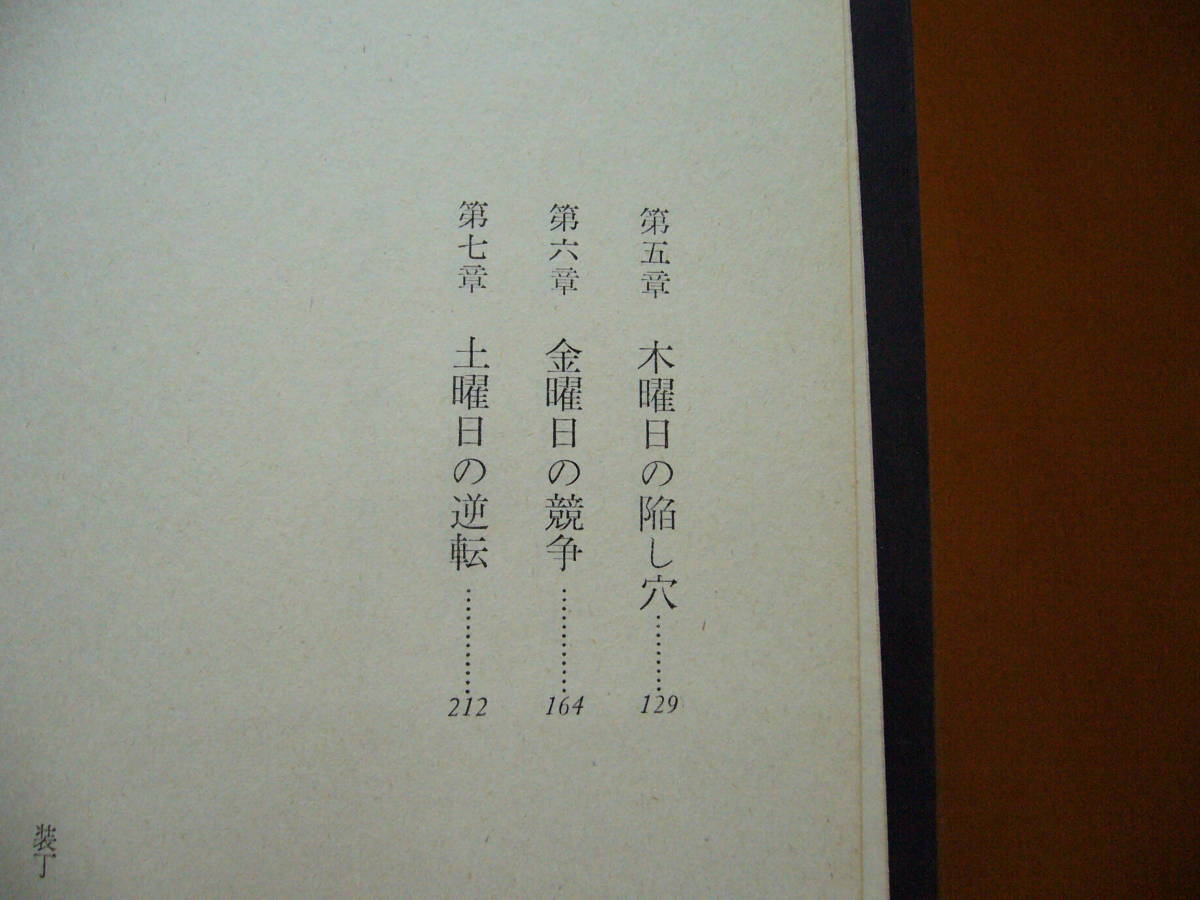 第五章 木曜日の陥し穴…………129
第六章 金曜日の競争…………164
第七章 土曜日の逆転…………212
装丁